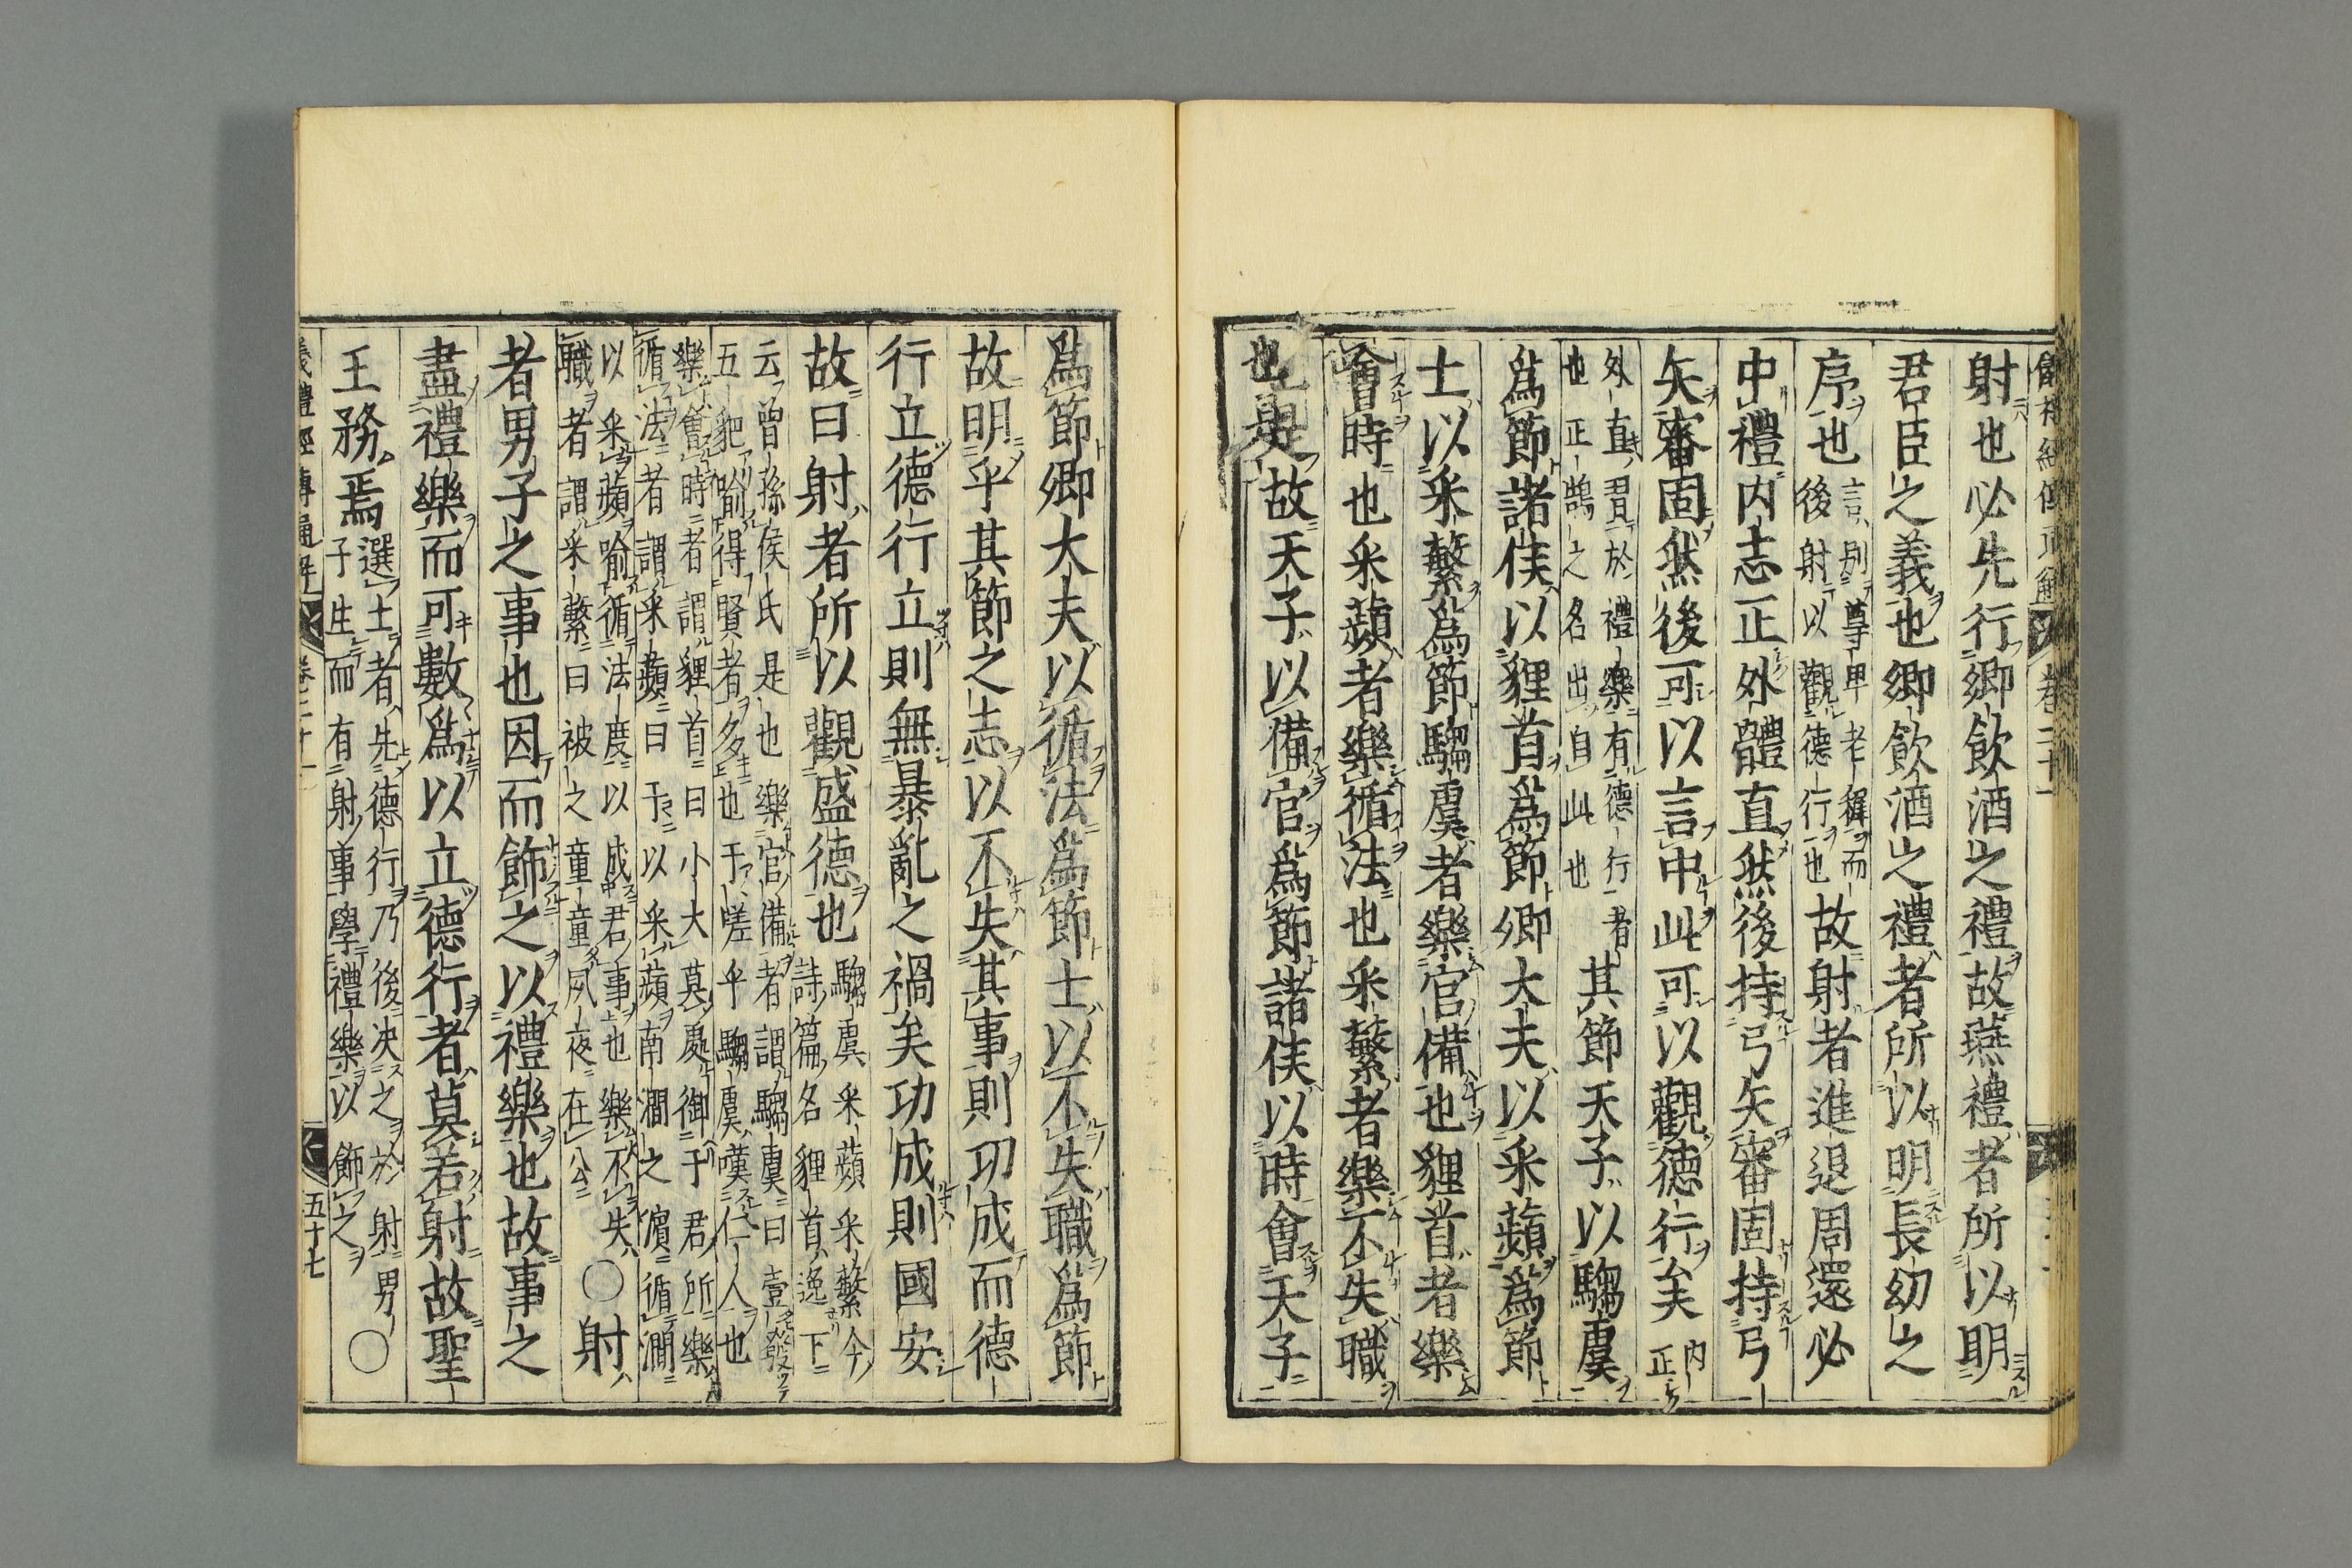 射也必先行卿飲酒之禮故燕禮者所以明
君臣之義也卿飲酒之禮者所以明長幼之
序也言別尊卑老稺而
後射以觀德行也故射者進退周還必
中禮内志正外體直然後持弓矢審固持弓
矢審固然後可以言中此可以觀德行矣内
正
外直習於禮樂有德行者
也正鵠之名出自此也其節天子以騶虞
爲節諸侯以貍首爲節卿大夫以采蘋爲節
士以采蘩爲節騶虞者樂官備也貍首者樂
會時也采蘋者樂循法也采蘩者樂不失職
也是故天子以備官爲節諸侯以時會天子
爲節卿大夫以循法爲節士以不失職爲節
故明乎其節之志以不失其事則功成而德
行立德行立則無暴亂之禍矣功成則國安
故曰射者所以觀盛德也騶虞采蘋采蘩今
詩篇名貍首逸下
云曾孫侯氏是也樂官備者謂騶虞曰壹發
五豝喻得賢者多也于嗟乎騶虞嘆仁人也
樂會時者謂貍首曰小大莫處御于君所樂
循法者謂采蘋曰于以采蘋南澗之濵循澗
以采蘋喻循法度以成君事也樂不失
職者謂采蘩曰被之童童夙夜在公〇射
者男子之事也因而飾之以禮樂也故事之
盡禮樂而可數爲以立德行者莫若射故聖
王務焉選士者先德行乃後決之於射男
子生而有射事學禮樂以飾之〇
五十七